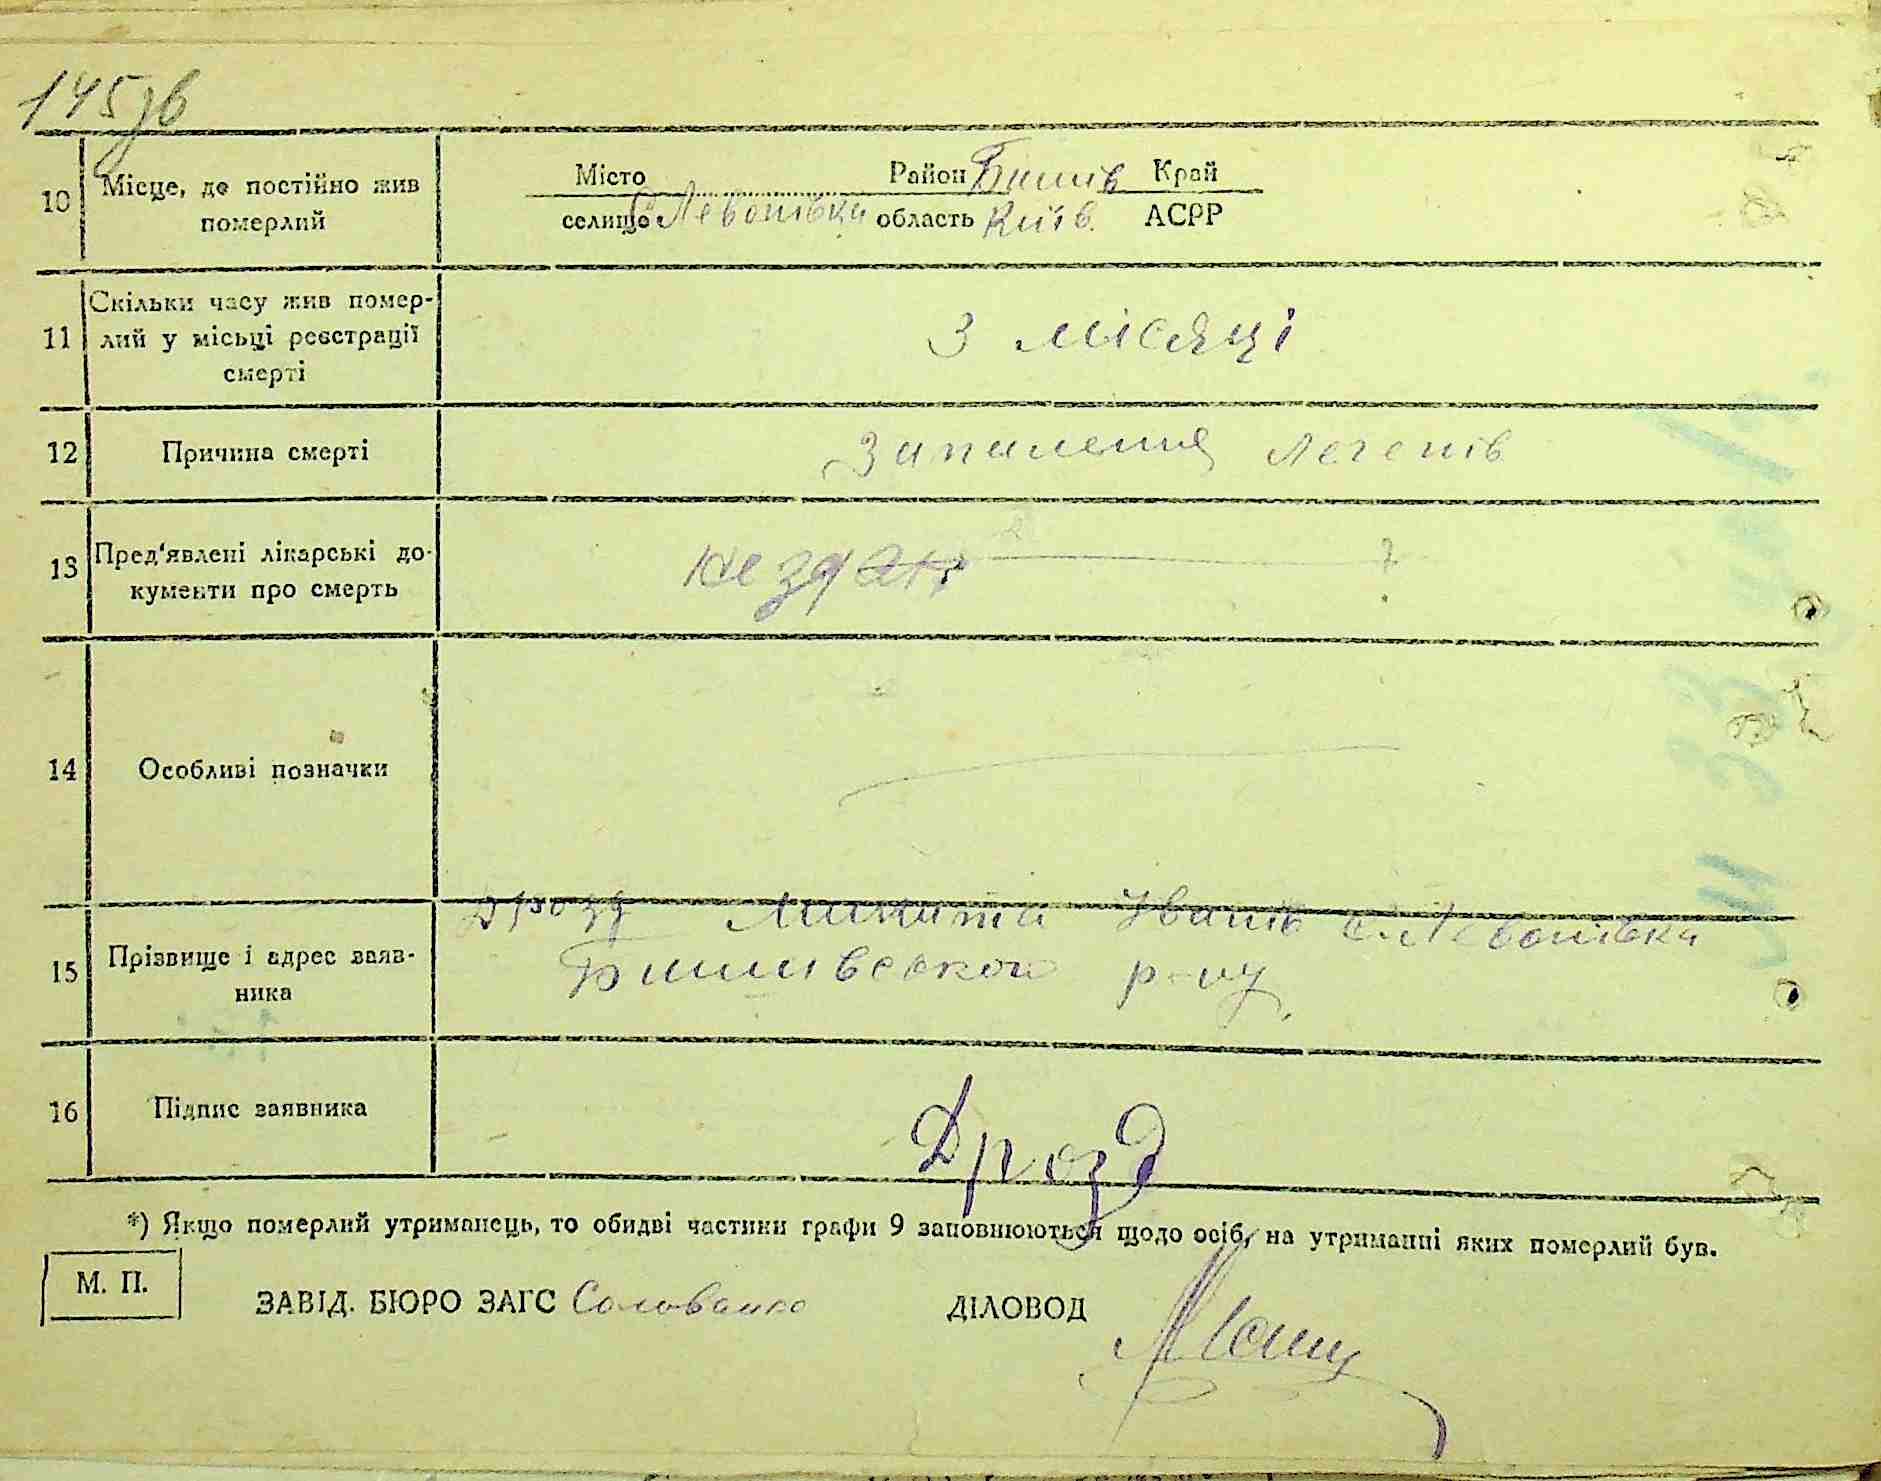 145зв
10 Місце, де постійно жив
померлий
Місто Район Бишів Край
селище Леонівка область Київ. АСРР
11 Скільки часу жив помер-
лий у місьці реєстрації
смерті
3 місяці
12 Причина смерті
Запалення легенів
13 Пред'явлені лікарські до-
кументи про смерть
не здано
14 Особливі позначки
15 Прізвище і адрес заяв-
ника
Дрозд Микита Іванів с. Леонівка
Бишівського р-ну,
16 Підпис заявника
Дрозд
*) Якщо померлий утриманець, то обидві частини графи 9 заповнюються щодо осіб, на утриманні яких померлий був.
М. П.
ЗАВІД. БЮРО ЗАГС ДІЛОВОД